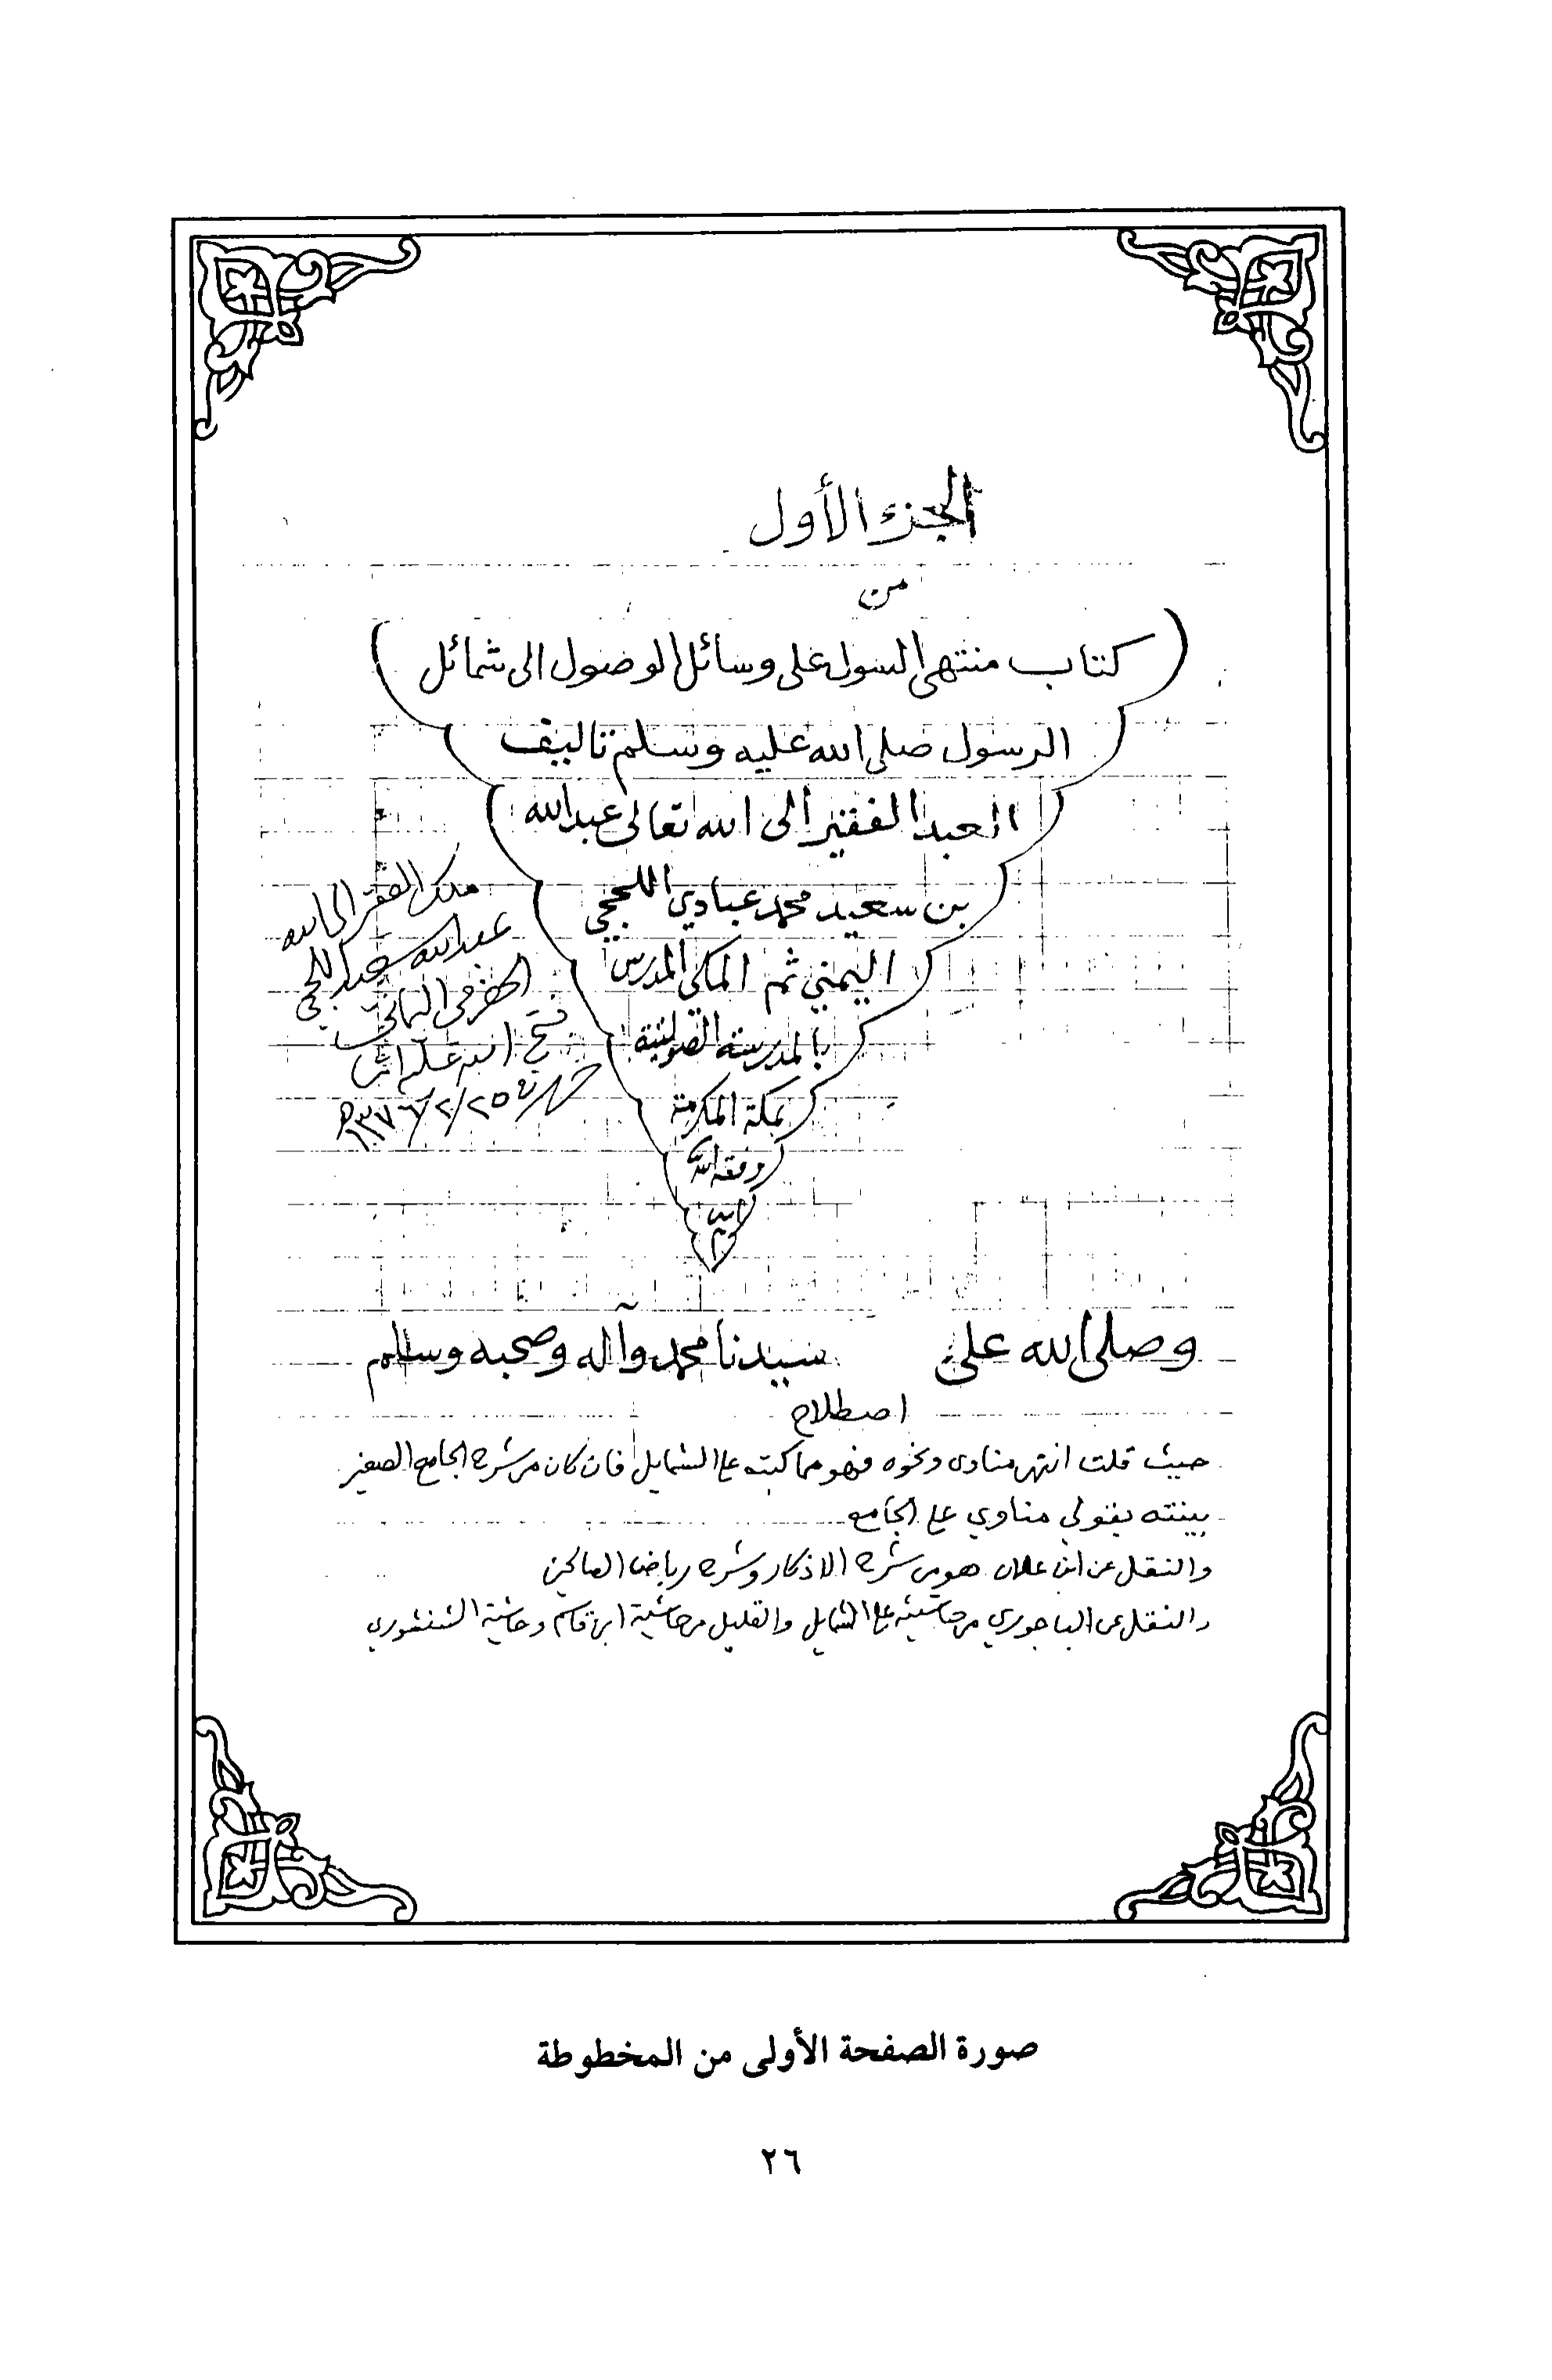 الجزء الأول
من
كتاب منتهى السول على وسائل الوصول الى شمائل
الرسول صلى الله عليه وسلم تاليف
العبد الفقير الى الله تعالى عبدالله
بن سعيد محمد عبادي اللحجي
اليمني ثم المكي المدرس
بالمدرسة الصولتية
بمكة المكرمة
وفقه الله
آمين
ملك الفقير الى الله
عبدالله سعيد اللحجي
الحضرمي اليماني
فتح الله عليه آمين
٢٥/٢/١٣٧٦ه
وصلى الله على سيدنا محمد وآله وصحبه وسلم
اصطلاح
حيث قلت انتهى مناوى ونحوه فهو مما كتبه على الشمايل فان كان من شرح الجامع الصغير
بينته بقولي مناوي على الجامع
والنقل عن ابن علان هو من شرح الاذكار وشرح رياض الصالحين
والنقل عن الباجوري من حاشيته على الشمايل والقليل من حاشية ابن قاسم وحاشية الشنشوري
صورة الصفحة الأولى من المخطوطة
٢٦